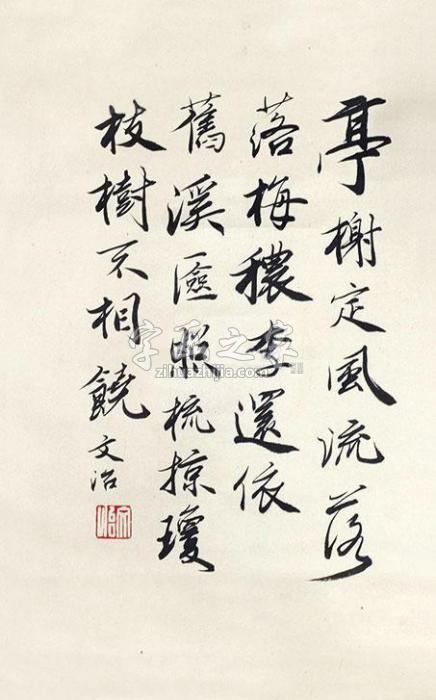 亭榭定風流落
落梅穠李還依
舊溪匳照梳掠瓊
枝樹不相饒
文治
字画之家
zihuazhijia.com